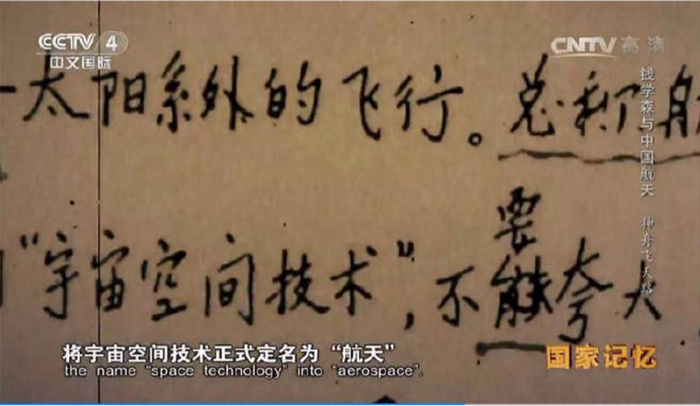 CCTV 4
中文国际
CNTV 高清
太阳系外的飞行。总称
钱学森与中国航天 神舟飞天路
要
"宇宙空间技术",不能夸大
将宇宙空间技术正式定名为"航天"
the name "space technology" into "aerospace".
国家记忆